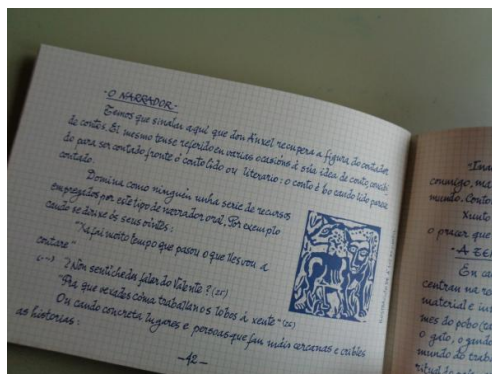 - O NARRADOR -
Temos que sinalar aquí que don Anxel recupera a figura do contador
de contos. El mesmo tense referido en varias ocasións á súa idea de conto, concibi
do para ser contado fronte ó conto lido ou literario: o conto é bo cando lido parece
contado.
Domina como ninguén unha serie de recursos
empregados por este tipo de narrador oral. Por exemplo
cando se dirixe ós seus oíntes:
"Xa fai moito tempo que pasou o que lles vou a
contare"
(...) ? Non sentichedes falar do Valente? (25)
"Pra que vexades cómo traballan os lobos á xente" (26)
Ou cando concreta lugares e persoas que fan máis cercanas e cribles
as historias:
-42-
"Ina
conmigo, ma
mundo. Conto
Xunto
o pracer que
- A TE
En ca
centrau na ro
material e in
mes do pobo (
o gato, o gando
mundo do trab